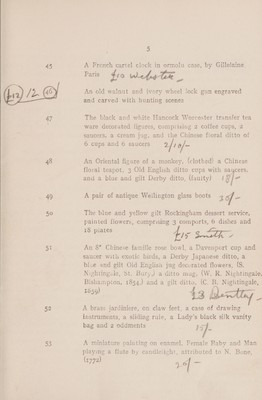 5
45 A French cartel clock in ormolu case, by Gilleinine
Paris £10 Webster
£12 / 12 46 An old walnut and ivory wheel lock gun engraved
and carved with hunting scenes
47 The black and white Hancock Worcester transfer tea
were decorated figures, comprising 2 coffee cups, 2
saucers, a cream jug, and the Chinese floral ditto of
6 cups and 6 saucers 2/10/-
48 An Oriental figure of a monkey, (clothed) a Chinese
floral teapot, 3 Old English ditto cups with saucers,
and a blue and gilt Derby ditto, (faulty) 18/-
49 A pair of antique Wellington glass boots 25/-
50 The blue and yellow gilt Rockingham dessert service,
painted flowers, comprising 3 comports, 6 dishes and
18 plates £15 Smith
51 An 8" Chinese famille rose bowl, a Davenport cup and
saucer with exotic birds, a Derby Japanese ditto, a
blue and gilt Old English jug decorated flowers, (S.
Nightingale, St. a ditto mug, (W. R. Nightingale,
Bishampton, 1834) and a gilt ditto, (C. B. Nightingale,
£3 Bentley
52 A brass jardiniere, on claw feet, a case of drawing
instruments, a sliding rule, a Lady's black silk vanity
bag and 2 oddments 15/-
53 A miniature painting on enamel, Female Baby and Man
playing a flute by candlelight, attributed to N. Bone,
(1772) 20/-